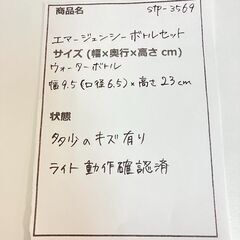 商品名
stp-3569
エマージェンシーボトルセット
サイズ(幅×奥行×高さ cm)
ウォーターボトル
幅9.5(口径6.5)×高さ23cm
状態
多少のキズ有り
ライト動作確認済